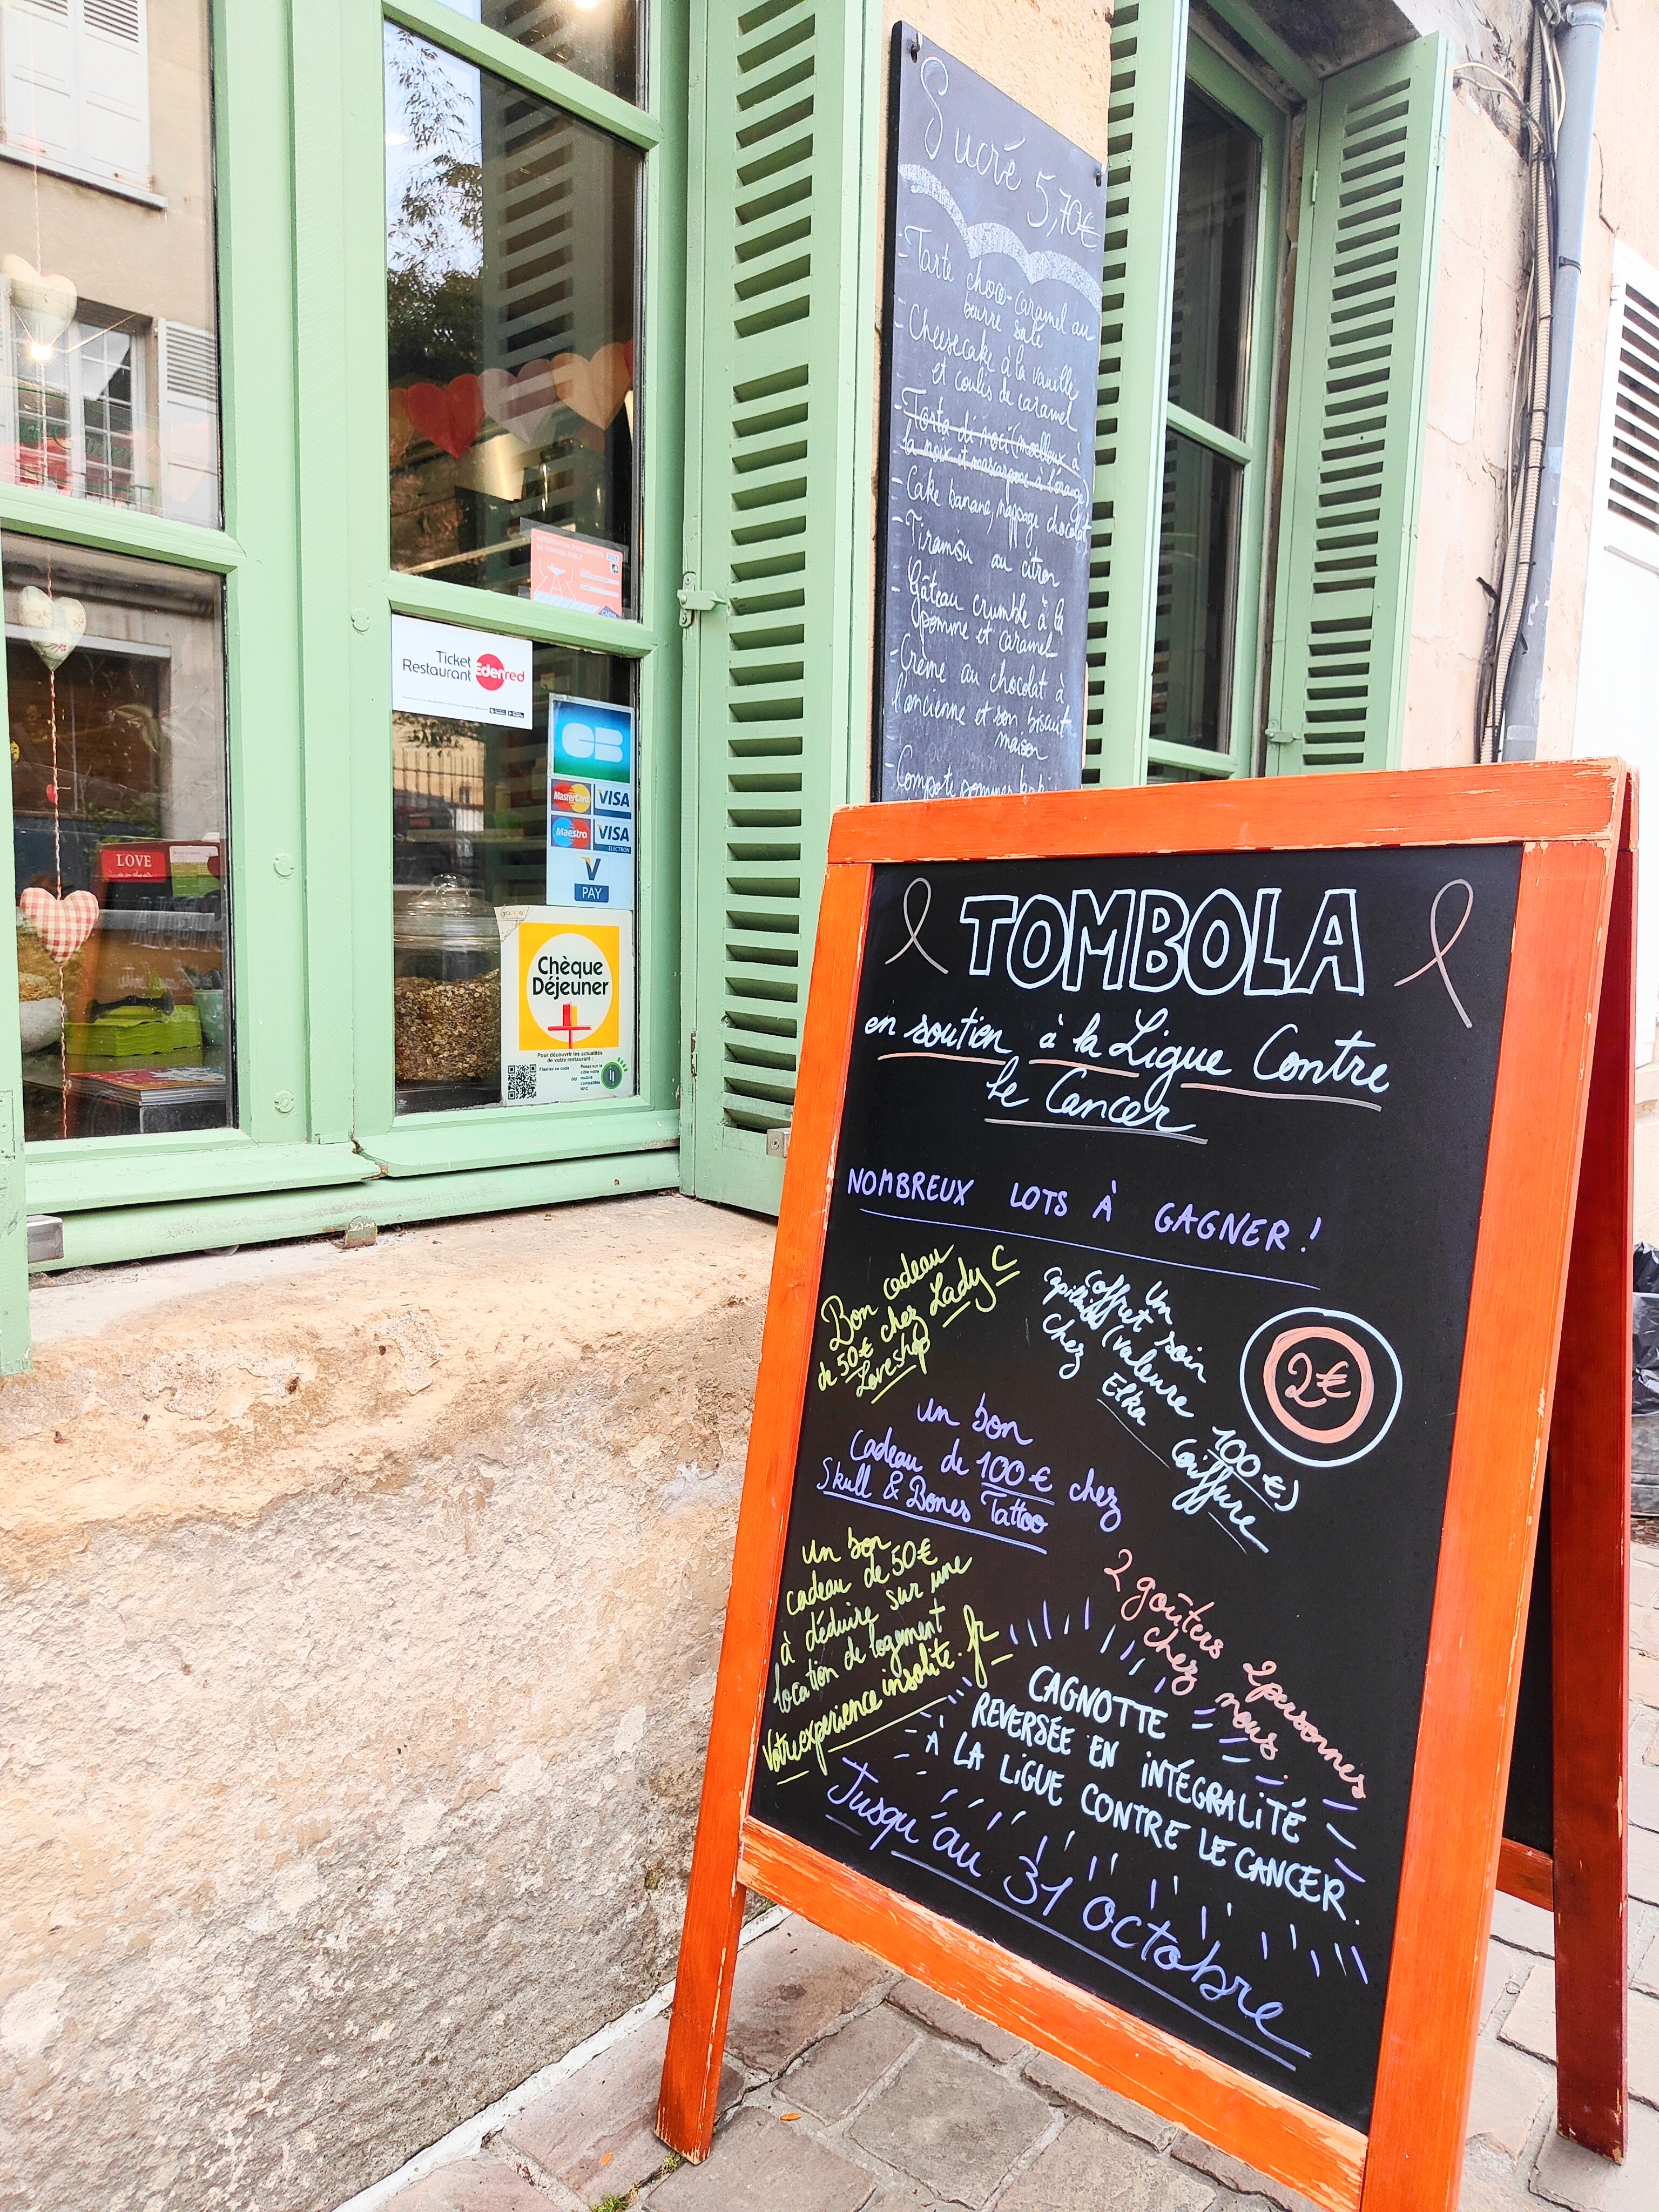 Sucré 5,70€
- Tarte choco-caramel au
beurre salé
- Cheesecake à la vanille
et coulis de caramel
- Torta di noci (moelleux à
la noix et mascarpone à l'orange)
- Cake banane, nappage chocolat
- Tiramisu au citron
- Gâteau crumble à la
pomme et caramel
- Crème au chocolat à
l'ancienne et son biscuit
maison
- Compote pommes
Ticket
Restaurant Edenred
CB
MasterCard VISA
Maestro VISA
ELECTRON
V
PAY
Chèque
Déjeuner
Pour découvrir les actualités
de votre restaurant :
LOVE
TOMBOLA
en soutien à la Ligue Contre
le Cancer
NOMBREUX LOTS À GAGNER !
Bon cadeau
de 50€ chez Lady C
Loveshop
Un
coffret soin
capillaire (valeure 100€)
chez Elka Coiffure
2€
un bon
cadeau de 100€ chez
Skull & Bones Tattoo
un bon
cadeau de 50€
à déduire sur une
location de logement
Votreexperienceinsolite.fr
2 goûters 2personnes
chez nous
CAGNOTTE
REVERSÉE EN INTÉGRALITÉ
À LA LIGUE CONTRE LE CANCER.
Jusqu'au 31 octobre